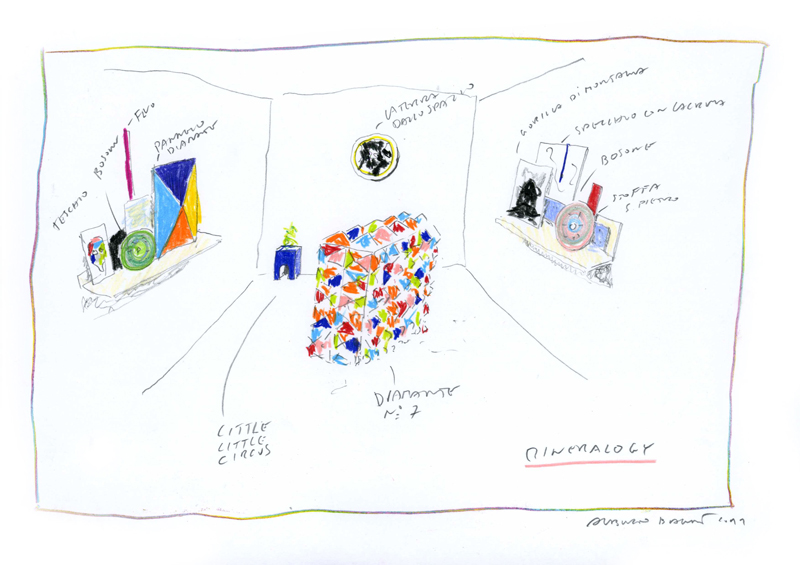 TESCHIO
BOSONE
FLUO
PANNELLO
DIAMANTE
LA TERRA
DALLO SPAZIO
GORILLA DI MONTAGNA
SPECCHIO CON LACRIMA
BOSONE
STOFFA
S PIETRO
LITTLE
LITTLE
CIRCUS
DIAMANTE
N: 7
MINERALOGY